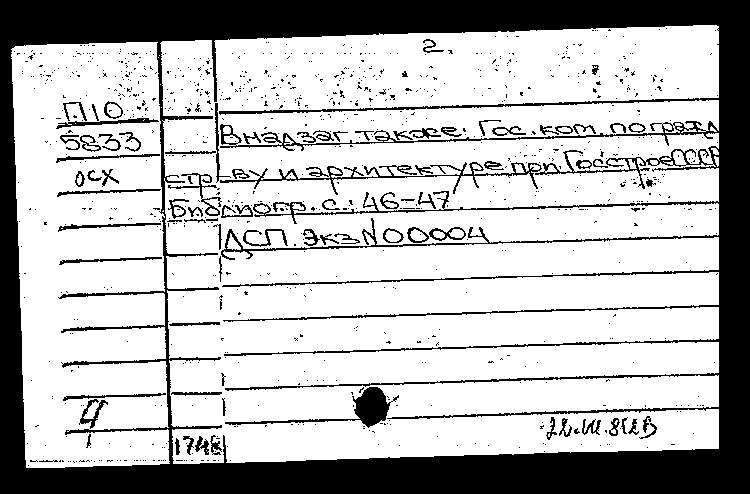 2.
П10
5833
осх
В надзаг. также: Гос. ком. по гражд
стр-ву и архитектуре при Госстрое СССР
Библиогр. с.: 46-47
ДСП. Экз N 00004
4
1748